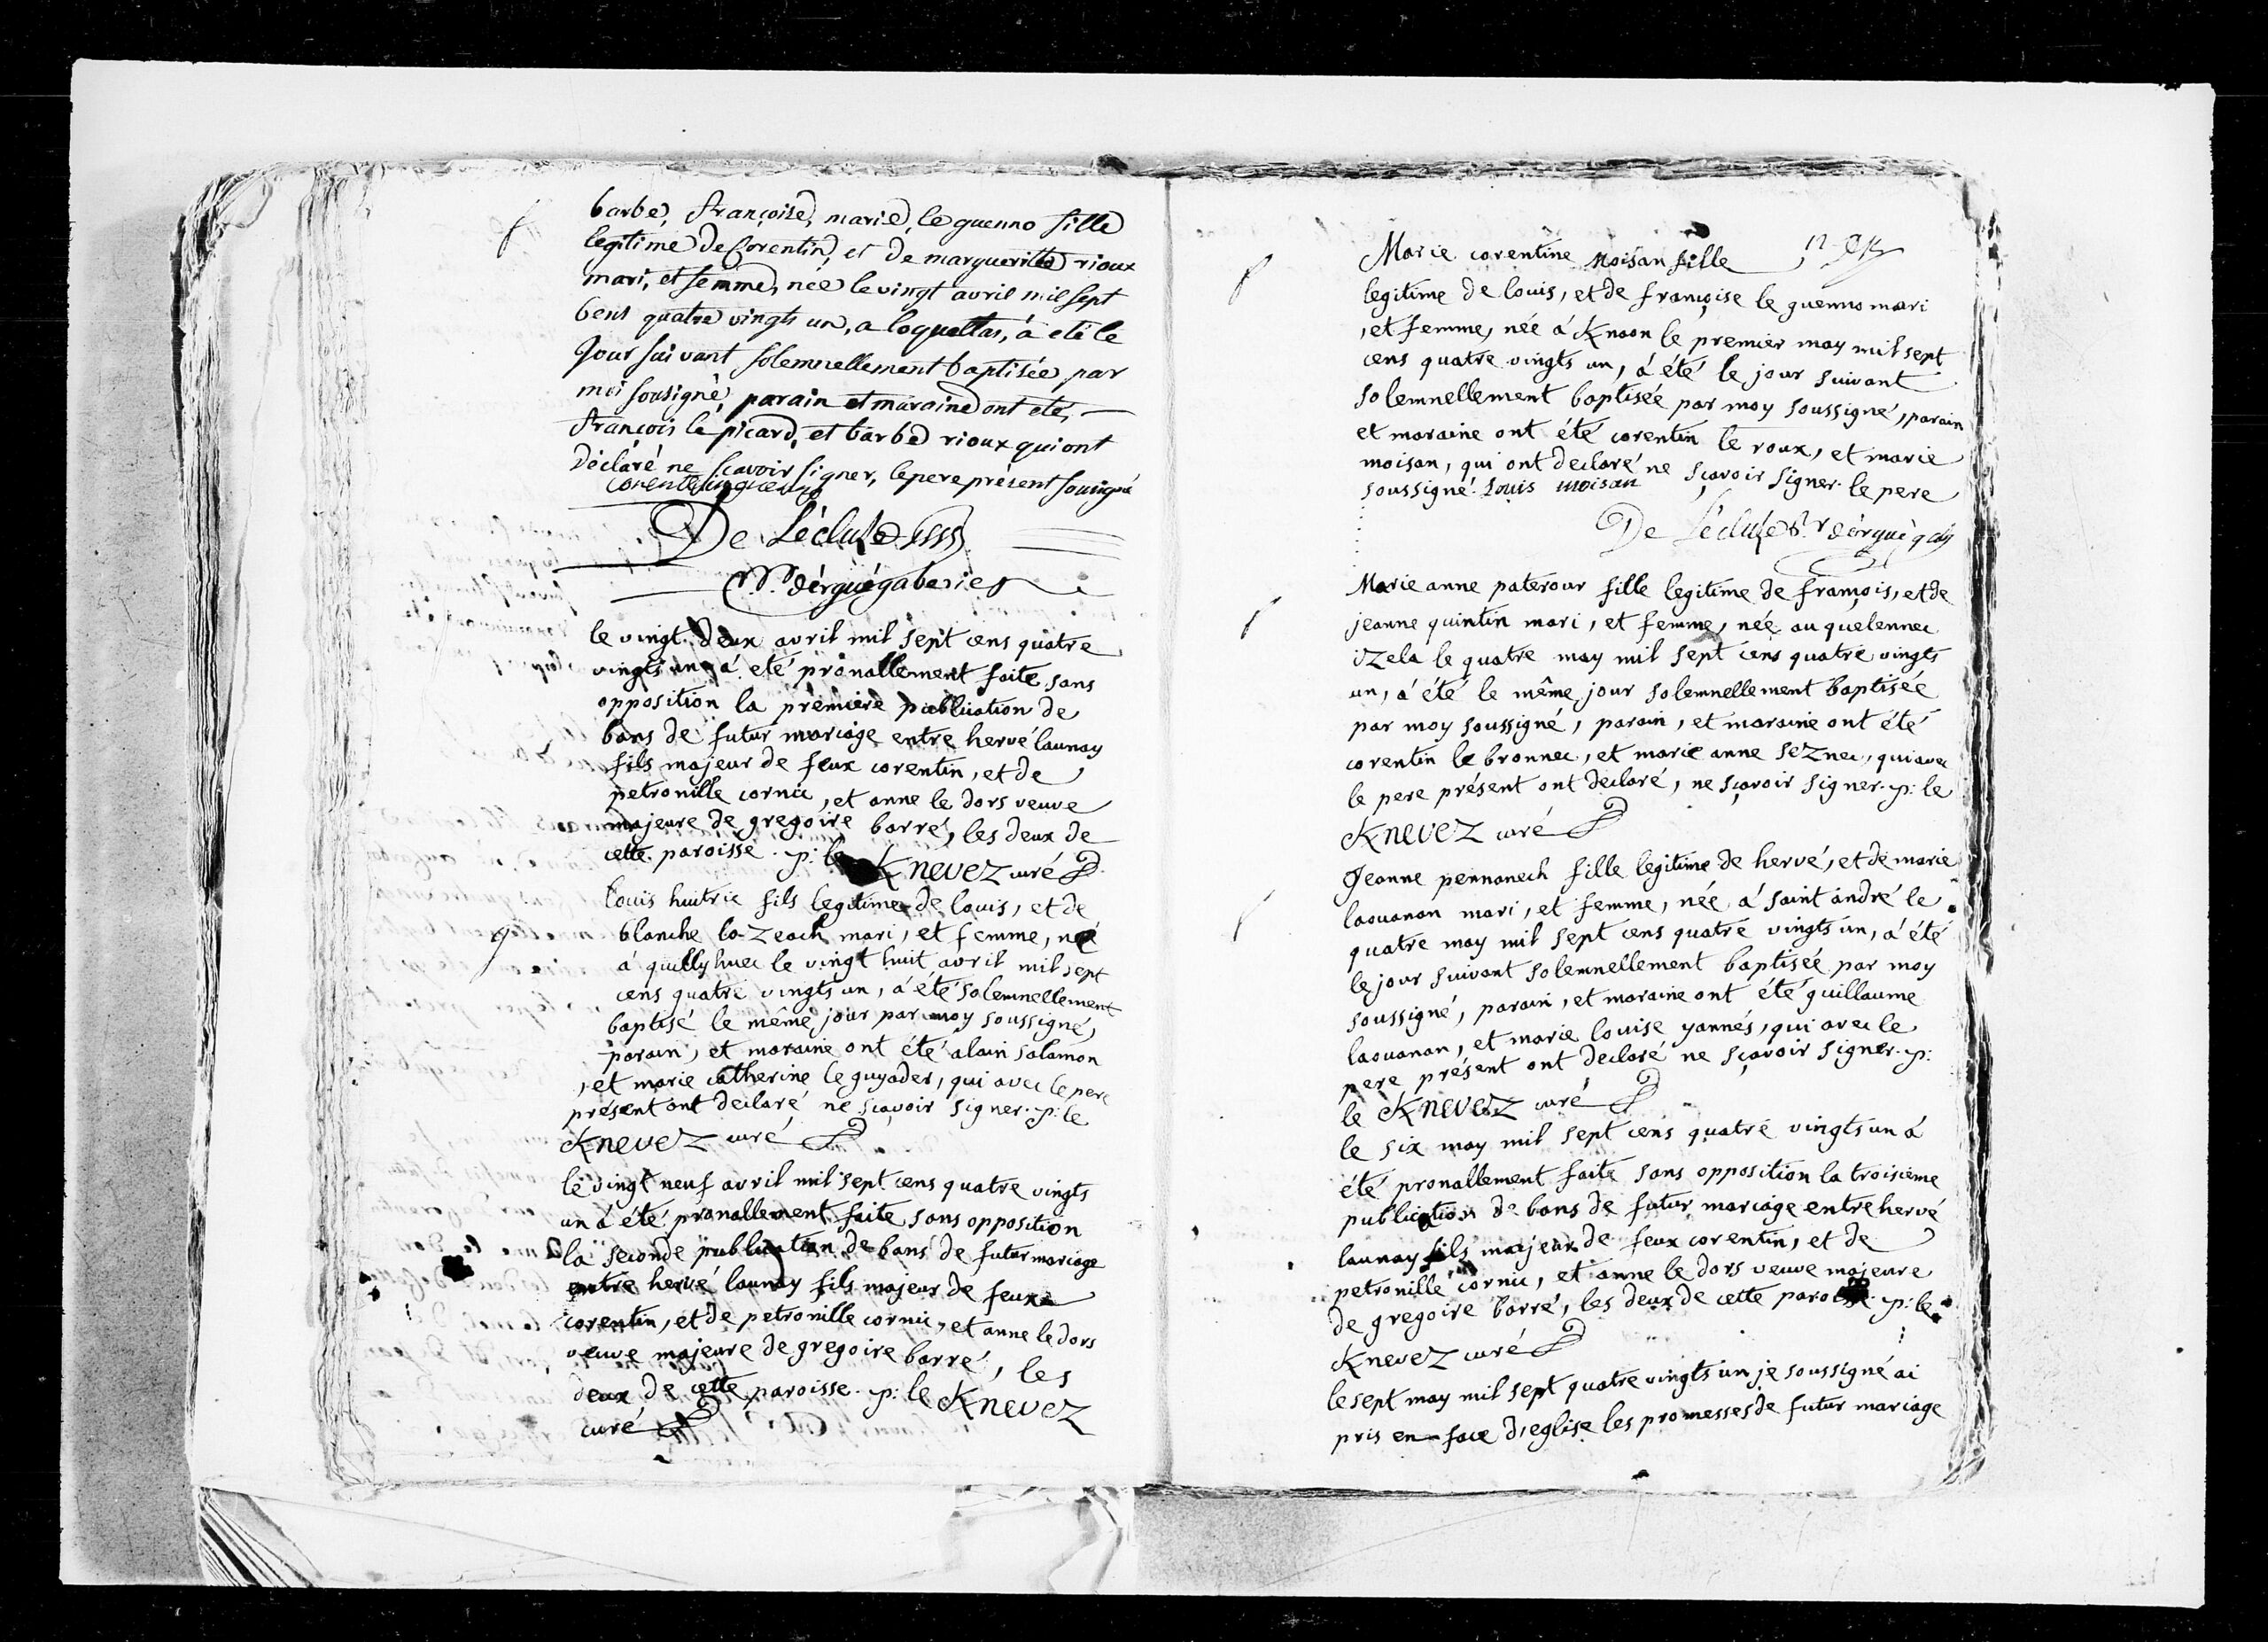 f
barbe, françoise, marie, le guenno fille
legitime de Corentin, et de margueritte rioux
mari, et femme, née le vingt avril mil sept
Cens quatre vingts un, a loqueltas, à eté le
jour suivant solemnellement baptisée par
moi sousigné, parain et maraine ont eté,
françois le picard, et barbe rioux qui ont
déclaré ne sçavoir signer, le pere présent sousigné
corentin guenno
De Lécluse
Vre. dérguégaberies
le vingt deux avril mil sept cens quatre
vingts un á eté pronallement faite sans
opposition la premiere publication de
bans de futur mariage entre hervé launay
fils majeur de feux corentin, et de
petronille cornic, et anne le dors veuve
majeure de gregoire barré, les deux de
cette paroisse. p: le Knevez curé
g
louis huitric fils legitime de louis, et de
blanche lo-zeach mari, et femme, né
á quilly huec le vingt huit avril mil sept
cens quatre vingts un, á été solemnellement
baptisé le même jour par moy soussigné,
parain, et maraine ont été alain salamon
, et marie catherine le guyader, qui avec le pere
présent ont declaré ne sçavoir signer. p: le
Knevez curé
le vingt neuf avril mil sept cens quatre vingts
un á été pronallement faite sans opposition
la seconde publication de bans de futur mariage
entre hervé launay fils majeur de feux
corentin, et de petronille cornic, et anne le dors
veuve majeure de gregoire barré, les
deux de cette paroisse. p: le Knevez
curé
f
Marie corentine Moisan fille
legitime de louis, et de françoise le guenno mari
, et femme, née á Knaon le premier may mil sept
cens quatre vingts un, á été le jour suivant
solemnellement baptisée par moy soussigné, parain
et maraine ont été corentin le roux, et marie
moisan, qui ont declaré ne sçavoir signer. le pere
soussigné. Louis moisan
De Lécluse Vr dérguégab
f
Marie anne paterour fille legitime de françois, et de
jeanne quintin mari, et femme, née au quelennec
izela le quatre may mil sept cens quatre vingts
un, á été le même jour solemnellement baptisée
par moy soussigné, parain, et maraine ont été
corentin le bronnec, et marie anne seznec, qui avec
le pere présent ont declaré, ne sçavoir signer. p: le
Knevez curé
f
Jeanne pennanech fille legitime de hervé, et de marie
laouanan mari, et femme, née á saint andré le
quatre may mil sept cens quatre vingts un, á été
le jour suivant solemnellement baptisée par moy
soussigné, parain, et maraine ont été guillaume
laouanan, et marie louise yannés, qui avec le
pere présent ont declaré ne sçavoir signer. p:
le Knevez curé
le six may mil sept cens quatre vingts un á
été pronallement faite sans opposition la troisieme
publication de bans de futur mariage entre hervé
launay fils majeur de feux corentin, et de
petronille cornic, et anne le dors veuve majeure
de gregoire barré, les deux de cette paroisse. p: le
Knevez curé
le sept may mil sept quatre vingts un je soussigné ai
pris en face d'eglise les promesses de futur mariage